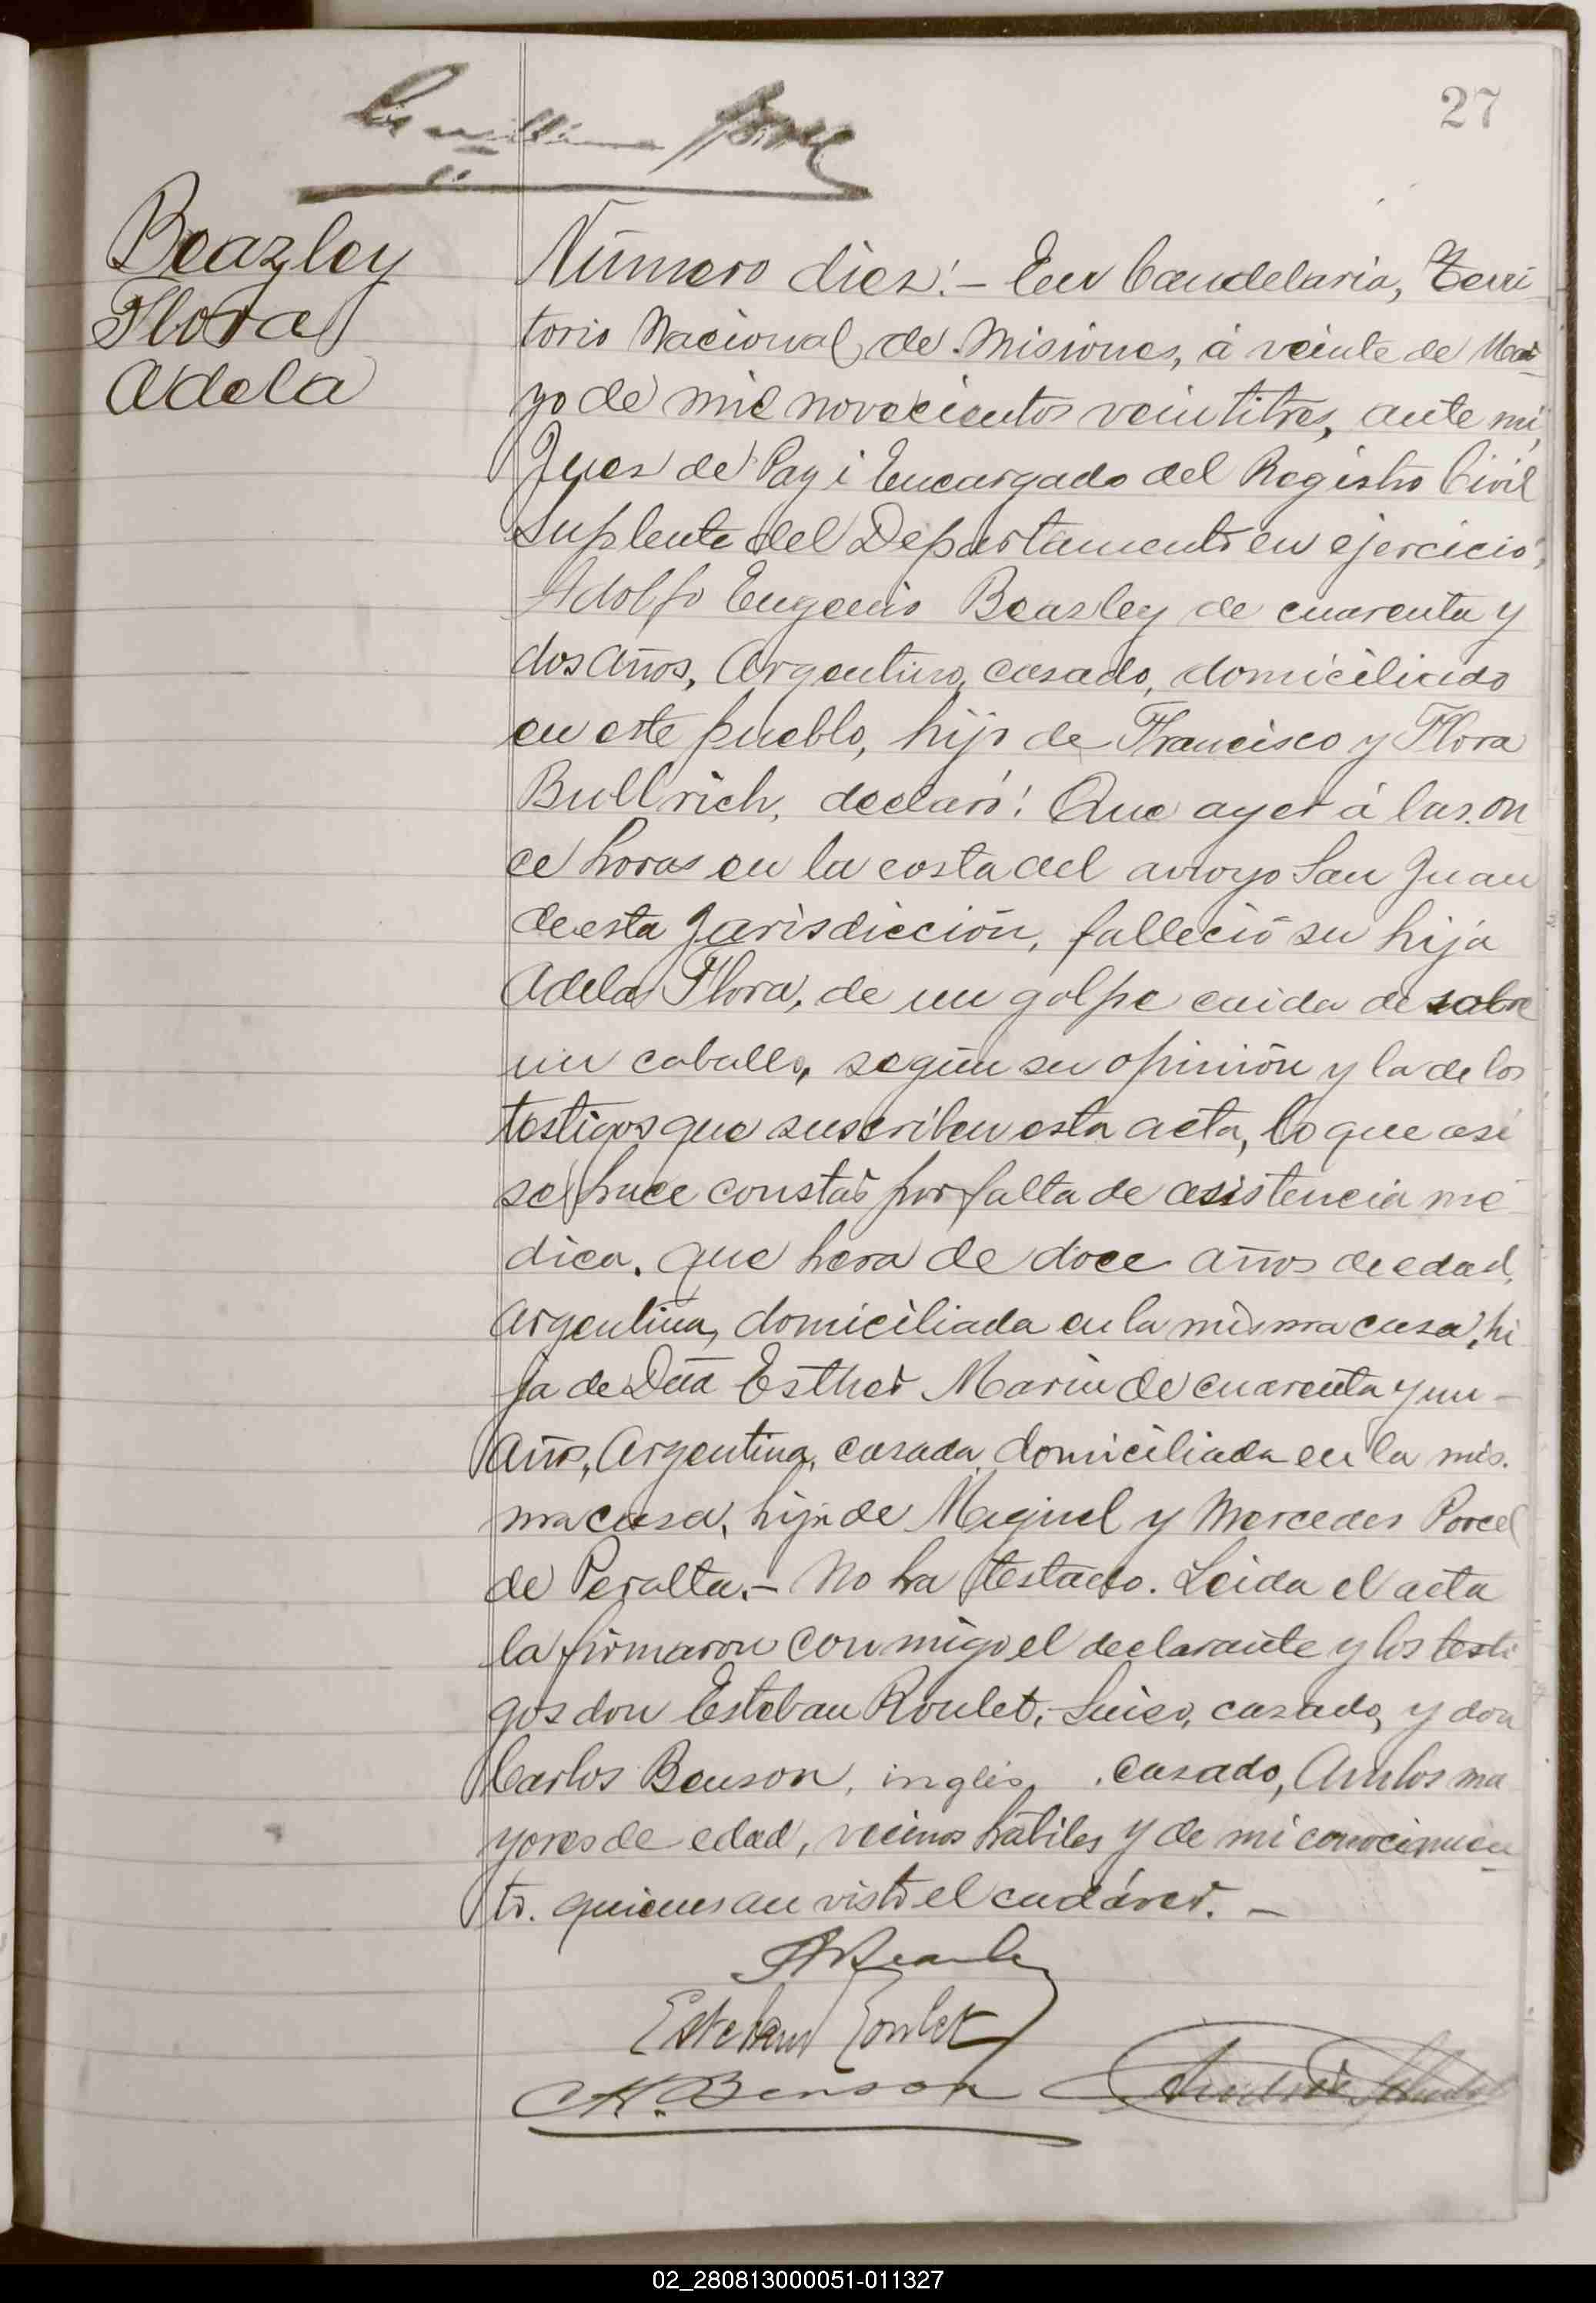 27
Beazley
Flora
Adela
Número diez:- En Candelaria, Terri
torio Nacional, de Misiones, á veinte de Ma-
yo de mil novecientos veintitres, ante mi,
Juez de Paz i Encargado del Registro Civil
Suplente del Departamento en ejercicio,
Adolfo Eugenio Beazley de cuarenta y
dos años, Argentino, casado, domiciliado
en este pueblo, hijo de Francisco y Flora
Bullrich, declaró: Que ayer á las on
ce horas en la costa del arroyo San Juan
de esta Jurisdicción, falleció su hija
Adela Flora, de un golpe caida de sobre
un caballo, según su opinión y la de los
testigos que suscriben esta acta, lo que asi
se hace constar por falta de asistencia mé
dica. que hera de doce años de edad,
Argentina, domiciliada en la misma casa, hi
ja de Dña Esther Marin de cuarenta y un -
años, Argentina, casada, domiciliada en la mis.
ma casa, hija de Miguel y Mercedes Porcel
de Peralta.- No ha testado. Leida el acta
la firmaron conmigo el declarante y los testi
gos don Esteban Roulet, Suizo, casado, y don
Carlos Benson, inglés, casado, Ambos ma
yores de edad, vecinos hábiles y de mi conocimien-
to. quienes an visto el cadáver. -
A Beazley
Esteban Roulet
CH. Benson
02_280813000051-011327